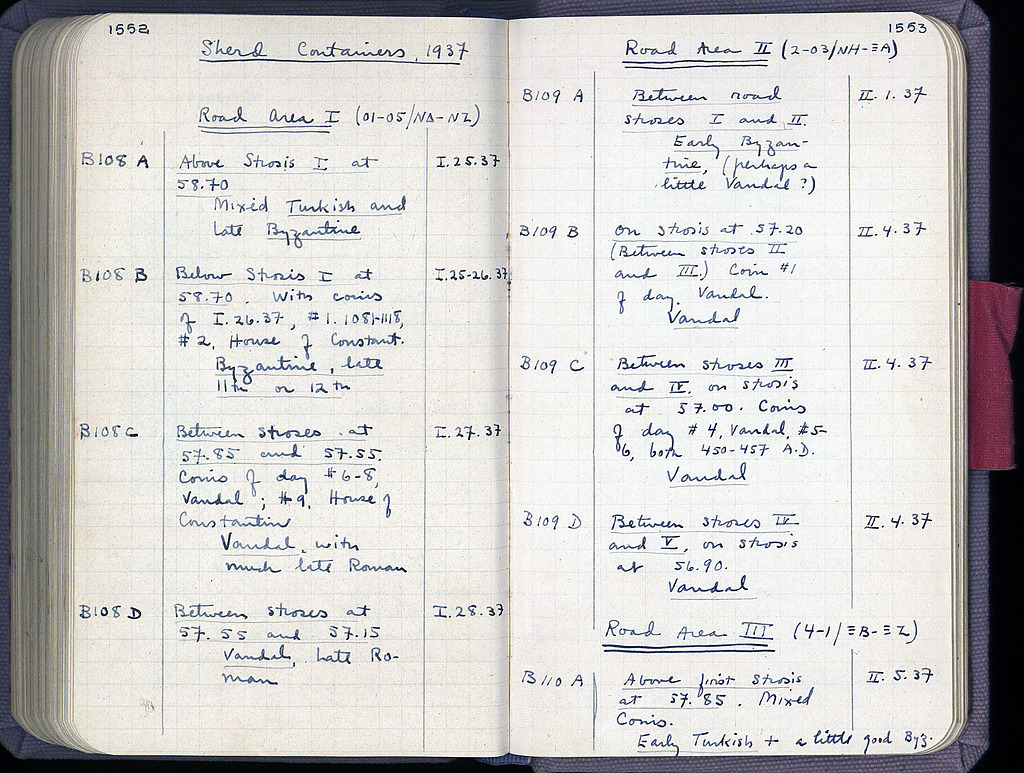 1552
Sherd Containers, 1937
Road Area I (01-05/NΔ-NZ)
B108 A Above Strosis I at I.25.37
58.70
Mixed Turkish and
Late Byzantine
B108 B Below Strosis I at I.25-26.37
58.70. With coins
of I.26.37, #1. 1081-1118,
#2, House of Constant.
Byzantine, late
11th or 12th
B108 C Between stroses at I.27.37
57.85 and 57.55.
Coins of day #6-8,
Vandal; #9, House of
Constantin
Vandal, with
much late Roman
B108 D Between stroses at I.28.37
57.55 and 57.15
Vandal, Late Ro-
man
1553
Road Area II (2-03/NH-ΞA)
B109 A Between road II.1.37
stroses I and II.
Early Byzan-
tine, (perhaps a
little Vandal?)
B109 B on strosis at 57.20 II.4.37
(Between stroses II
and III.) Coin #1
of day. Vandal.
Vandal
B109 C Between stroses III II.4.37
and IV. on strosis
at 57.00. Coins
of day #4, Vandal, #5-
6, both 450-457 A.D.
Vandal
B109 D Between stroses IV II.4.37
and V, on strosis
at 56.90.
Vandal
Road Area III (4-1/ΞB-ΞZ)
B110 A Above first strosis II.5.37
at 57.85. Mixed
Coins.
Early Turkish + a little good Byz.